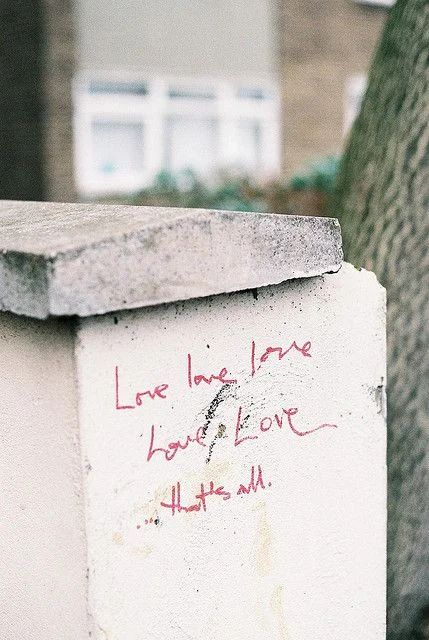 Love love love
Love Love
...that's all.